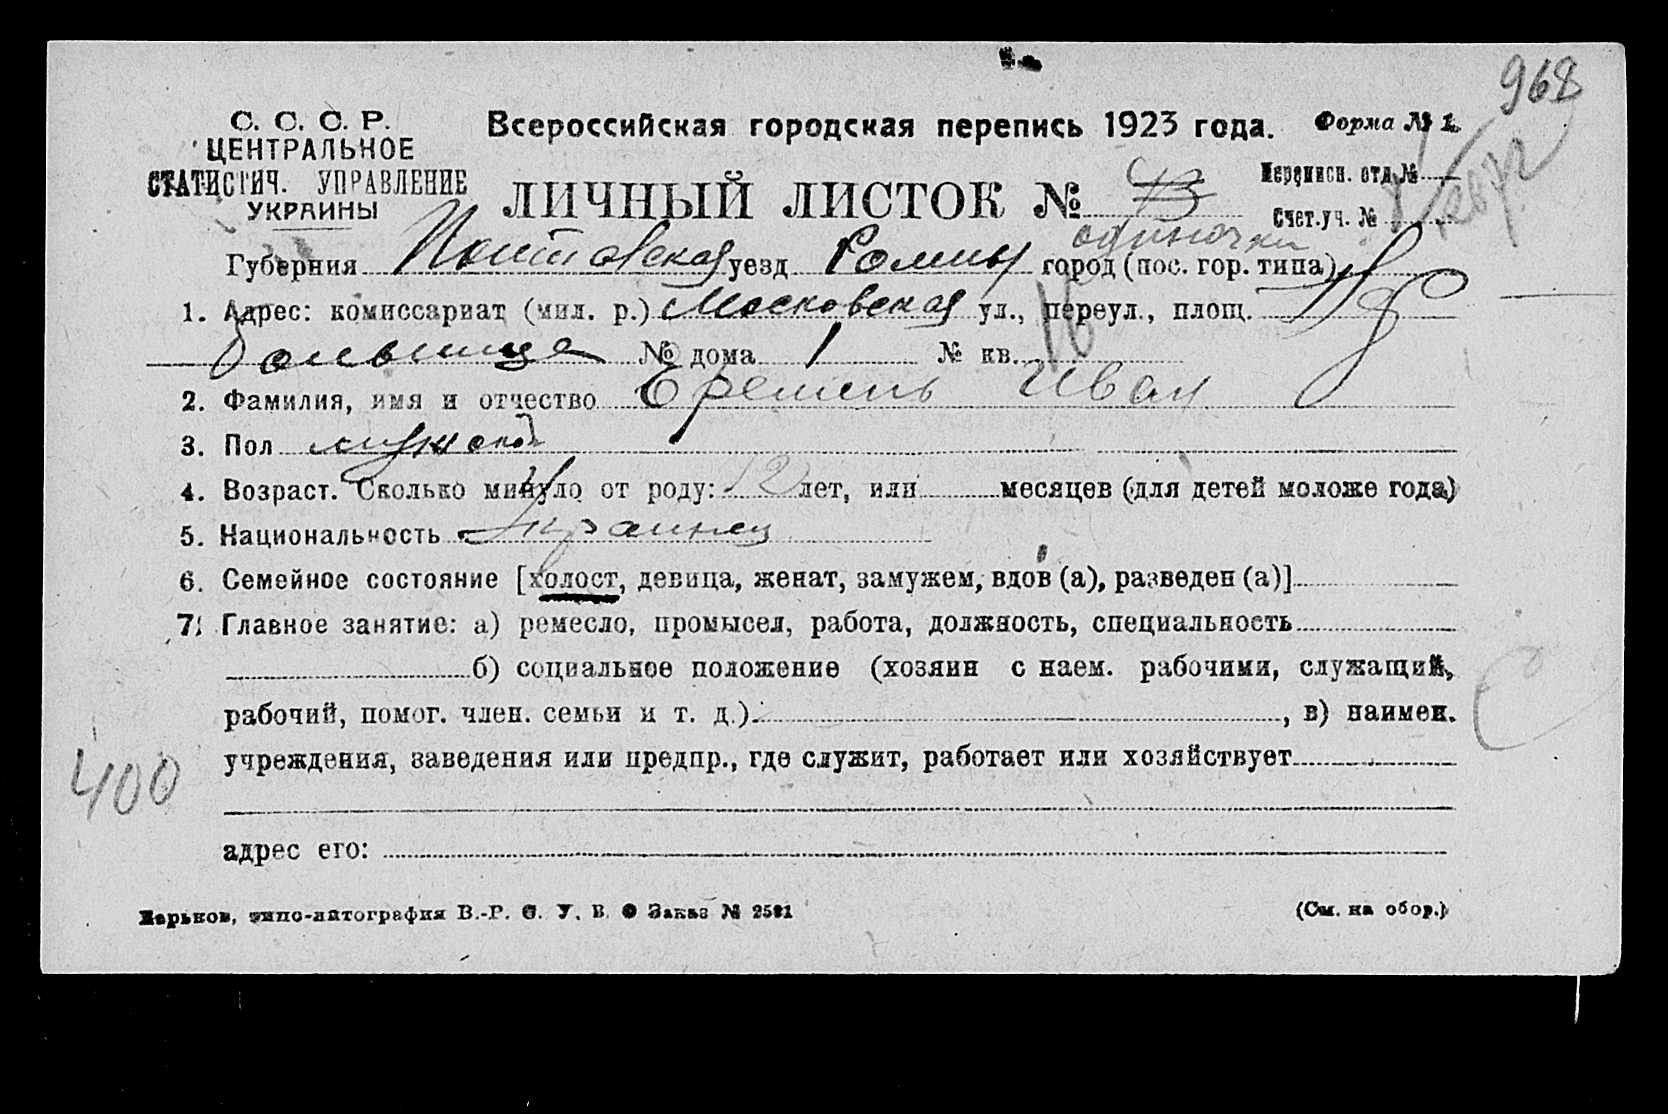 968
С. С. С. Р.
ЦЕНТРАЛЬНОЕ
СТАТИСТИЧ. УПРАВЛЕНИЕ
УКРАИНЫ
Всероссийская городская перепись 1923 года. Форма № 1.
ЛИЧНЫЙ ЛИСТОК №
Переписн. отд. №
Счет. уч. №
одиночки
Губерния Полтавская уезд Ромны город (пос. гор. типа)
1. Адрес: комиссариат (мил. р.) Московская ул., переул., площ.
больница № дома 1 № кв.
2. Фамилия, имя и отчество Еремень Иван
3. Пол мужской
4. Возраст. Сколько минуло от роду: 12 лет, или месяцев (для детей моложе года)
5. Национальность Украинец
6. Семейное состояние [холост, девица, женат, замужем, вдов (а), разведен (а)]
7. Главное занятие: а) ремесло, промысел, работа, должность, специальность
б) социальное положение (хозяин с наем. рабочими, служащий,
рабочий, помог. член. семьи и т. д.) , в) наимен.
учреждения, заведения или предпр., где служит, работает или хозяйствует
400
адрес его:
Харьков, типо-литография В.-Р. С. У. В. О Заказ № 2581
(См. на обор.)